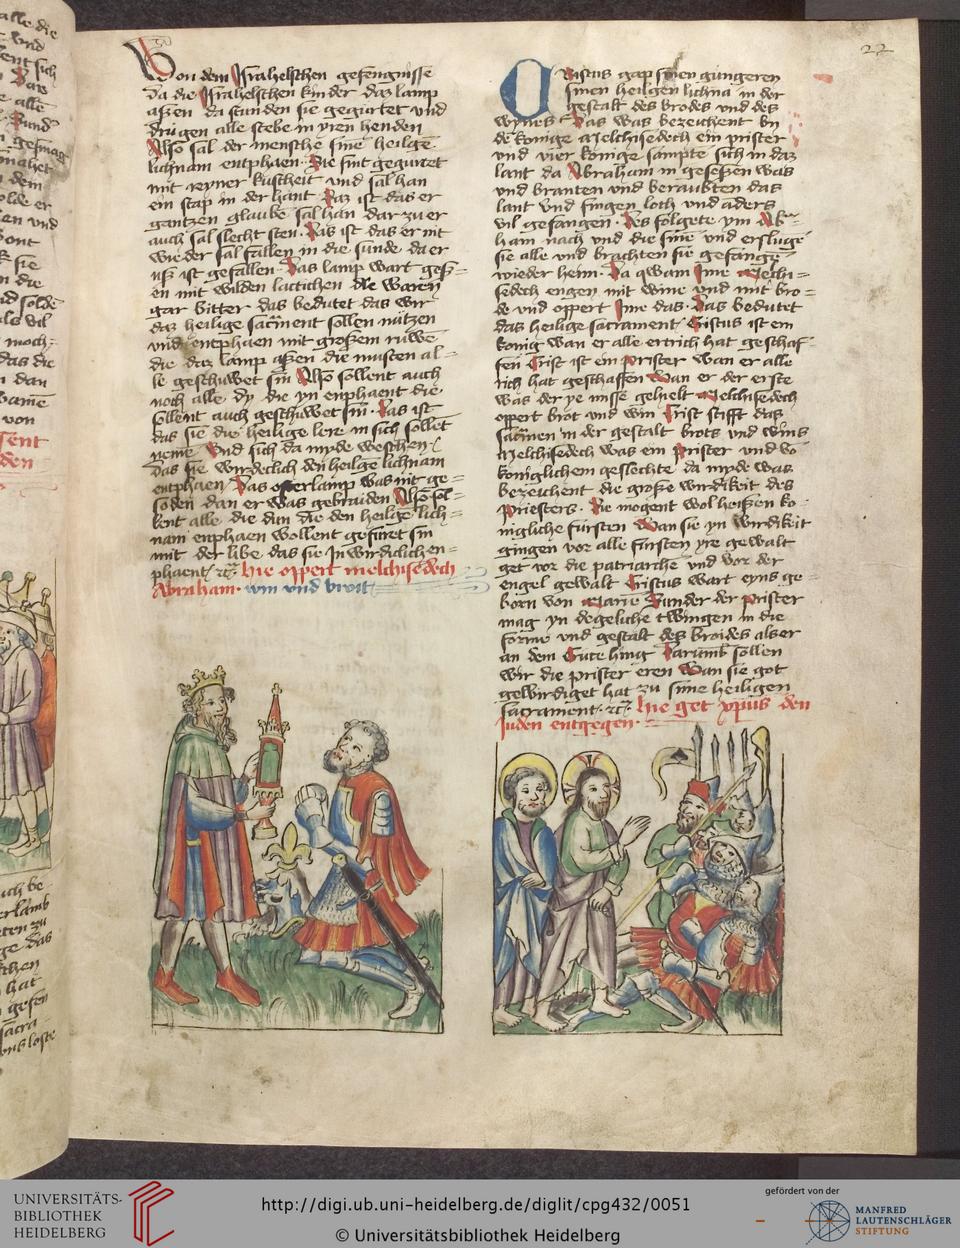 22
Von dem Israhelschen gefengnisse
da die Israhelschen kinder daz lamp
aßen da stunden sie gegurtet und
drugen alle stebe in yren henden
Also sal der mensche sine heilge
lichnam entphaen. Die sint gegurtet
mit reyner kuscheit und sal han
ein stap in der hant Daz ist das er
gantzen glaube sal han dar zu er
auch sal slecht sten. Das ist das er nit
wieder sal fallen in die sunde da er
uß ist gefallen. Das lamp wart geß=
en mit wilden lactichen die waren
gar bitter das bedutet das wir
daz heilige sacrment sollen nutzen
und entphaen mit großem ruwe
die daz lamp aßen die musten al=
le geschuwet sin Also sollent auch
noch alle dy die yn enphaent die
sollent auch geschuwet sin. Das ist
das sie die heilige lere in sich sollet
neme und sich da myde weschen
Das sie wirdeclich den heilge lichnam
entphaen. Das osterlamp was nit ge=
soden dan er was gebraiden Also sol=
lent alle die dan die den heilge lich=
nam enphaen wollent gefuret sin
mit der libe das sie In wirdiclich en=
phaent. etc. hie oppert melchisedech
Abraham. win und broit
Cristus gap sinen gungeren
sinen heilgen lichna in der
gestalt des brodes und des
wynes Das was bezeuchent bij
de konige Melchisedech ein prister
und vier konige sampte sich in daz
lant da Abraham in geseßen was
und branten und beraubten das
lant und fingen loth und anders
vil gefangen. Des folgete ym Ab=
ham nach und die sine und ersluge
sie alle und brachten sie gefange
wieder heim. Da qwam Ime Melchi=
sedech engen mit wine und mit bro=
de und oppert Ime das. Das bedutet
das heilige sacrament Cristus ist em
konig wan er alle ertrich hat geschaf=
fen Crist ist ein prister wan er alle
rich hat geschaffen Wan er der erste
was der ye misse gehielt Melchisedech
oppert brot und win Crist stifft das
sacrmen in der gestalt brots und wins
Melchisedech was ein prister und vo
koniglichem geslechte da myde was
bezeichent die große wirdikeit des
priesters. Die mogent wol heißen ko
nigliche fursten Wan sie yn wirdikeit
gingen vor alle fursten yre gewalt
get vor die patriarche und vor der
engel gewalt Cristus wart eyns ge=
born von Marie Sunder der prister
mag yn degeliche twingen in die
forme und gestalt des broides alser
an dem Crutze hing Darumb sollen
wir die prister eren Wan sie got
gewirdiget hat zu sime heiligen
sacrament. etc. hie get xpus den
Juden entgegen.
UNIVERSITÄTS-
BIBLIOTHEK
HEIDELBERG
http://digi.ub.uni-heidelberg.de/diglit/cpg432/0051
© Universitätsbibliothek Heidelberg
gefördert von der
MANFRED
LAUTENSCHLÄGER
STIFTUNG